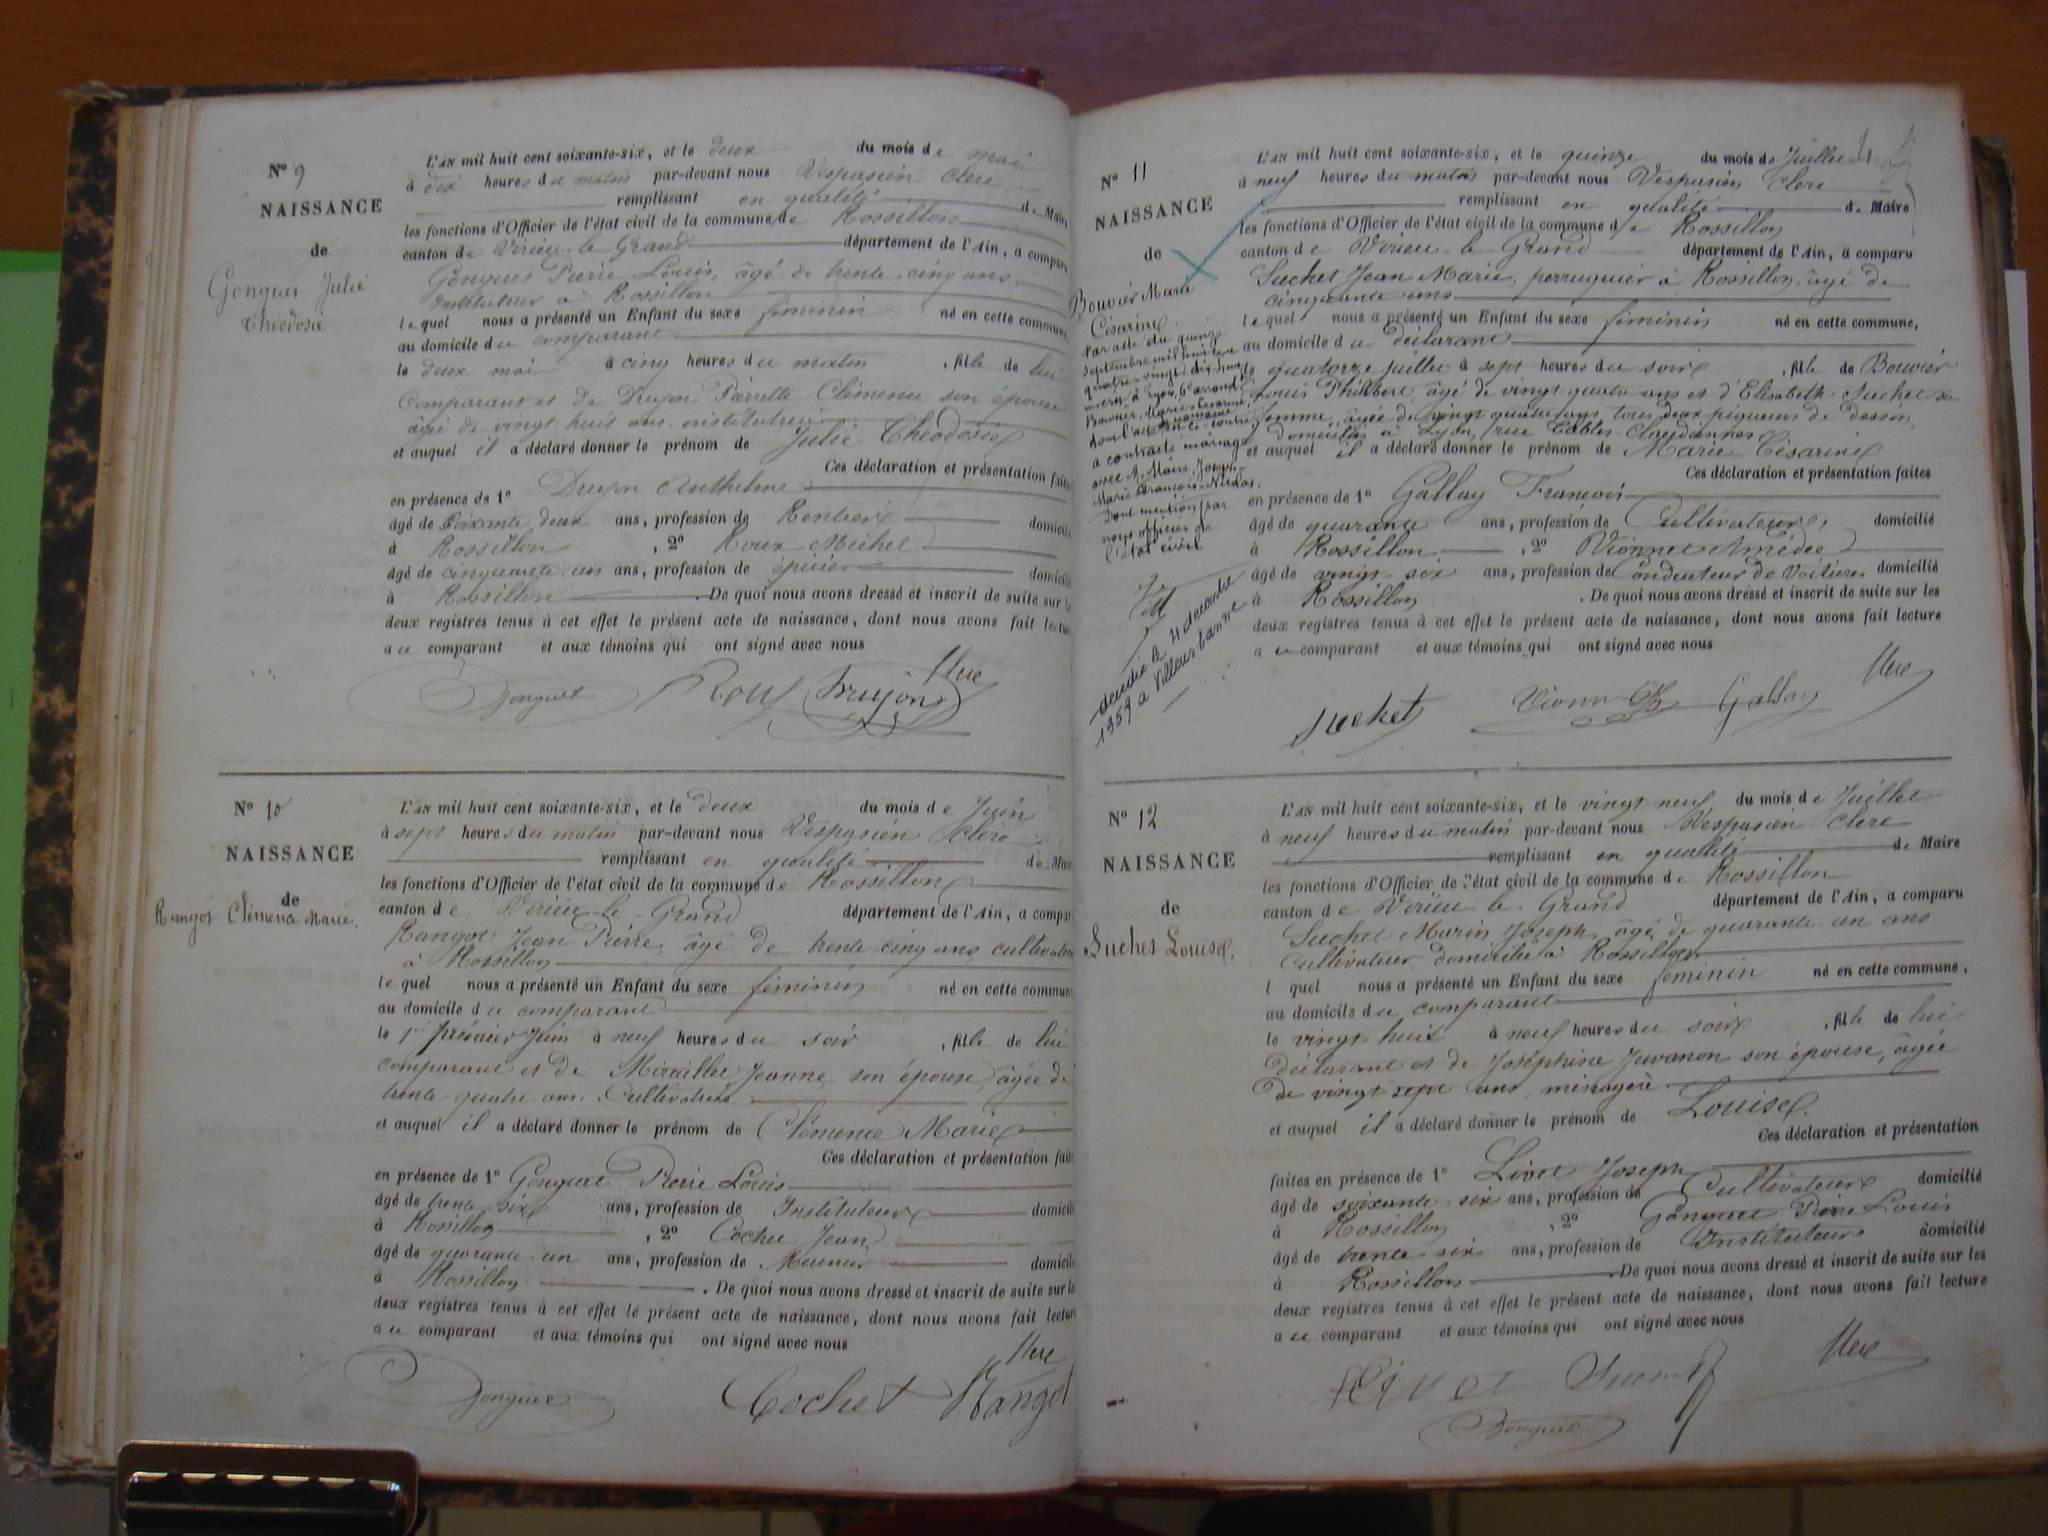 N° 9
NAISSANCE
de
Gonguet Julie
Théodosie
L'AN mil huit cent soixante-six, et le deux du mois de mai
à dix heures du matin par-devant nous Vespasien Clerc
remplissant en qualité de Maire
les fonctions d'Officier de l'état civil de la commune de Rossillon
canton de Virieu-le-Grand département de l'Ain, a comparu
Gonguet Pierre Louis, âgé de trente-cinq ans
instituteur à Rossillon
lequel nous a présenté un Enfant du sexe féminin né en cette commune,
au domicile du comparant
le deux mai à cinq heures du matin, fille de lui
comparant et de Drujon Pierrette Clémence son épouse
âgé de vingt huit ans institutrice
et auquel il a déclaré donner le prénom de Julie Théodosie
Ces déclaration et présentation faites
en présence de 1° Drujon Anthelme
âgé de soixante deux ans, profession de Rentier domicilié
à Rossillon, 2° Roux Michel
âgé de cinquante un ans, profession de épicier domicilié
à Rossillon. De quoi nous avons dressé et inscrit de suite sur les
deux registres tenus à cet effet le présent acte de naissance, dont nous avons fait lecture
au comparant et aux témoins qui ont signé avec nous
Clerc
Gonguet Roux Drujon
N° 10
NAISSANCE
de
Rangot Clémence Marie.
L'AN mil huit cent soixante-six, et le deux du mois de Juin
à sept heures du matin par-devant nous Vespasien Clerc
remplissant en qualité de Maire
les fonctions d'Officier de l'état civil de la commune de Rossillon
canton de Virieu-le-Grand département de l'Ain, a comparu
Rangot Jean Pierre âgé de trente-cinq ans cultivateur
à Rossillon
lequel nous a présenté un Enfant du sexe féminin né en cette commune
au domicile du comparant
le 1er premier Juin à neuf heures du soir, fille de lui
comparant et de Miraillet Jeanne son épouse, âgée de
trente quatre ans. Cultivatrice
et auquel il a déclaré donner le prénom de Clémence Marie
Ces déclaration et présentation faites
en présence de 1° Gonguet Pierre Louis
âgé de trente six ans, profession de Instituteur domicilié
à Rossillon, 2° Cochet Jean
âgé de quarante un ans, profession de Meunier domicilié
à Rossillon. De quoi nous avons dressé et inscrit de suite sur les
deux registres tenus à cet effet le présent acte de naissance, dont nous avons fait lecture
au comparant et aux témoins qui ont signé avec nous
Clerc
Gonguet Cochet Rangot
N° 11
NAISSANCE
de
Bouvier Marie
Césarine
Par acte du quinze
septembre mil huit cent
quatre-vingt-dix-huit
mairie à Lyon, 6e arrondt
Bouvier, Marie-Césarine
dont l'acte de naissance est ci-contre
a contracté mariage
avec M. Maire, Joseph-
Marie-François-Nicolas.
Dont mention par
nous officier de
l'état civil
décédée le 4 décembre
1957 à Villeurbanne
L'AN mil huit cent soixante-six, et le quinze du mois de Juillet
à neuf heures du matin par-devant nous Vespasien Clerc
remplissant en qualité de Maire
les fonctions d'Officier de l'état civil de la commune de Rossillon
canton de Virieu-le-Grand département de l'Ain, a comparu
Suchet Jean Marie, perruquier à Rossillon, âgé de
cinquante ans
lequel nous a présenté un Enfant du sexe féminin né en cette commune,
au domicile du déclarant
le quatorze juillet à sept heures du soir, fille de Bouvier
Louis Philibert, âgé de vingt quatre ans et d'Elisabeth Suchet sa
femme, âgée de vingt quatre ans, tous deux piqueurs de dessin,
domiciliés à Lyon, rue Tables-Claudiennes
et auquel il a déclaré donner le prénom de Marie Césarine
Ces déclaration et présentation faites
en présence de 1° Gallay François
âgé de quarante ans, profession de Cultivateur, domicilié
à Rossillon, 2° Vionnet Amédée
âgé de vingt-six ans, profession de Conducteur de Voitures domicilié
à Rossillon. De quoi nous avons dressé et inscrit de suite sur les
deux registres tenus à cet effet le présent acte de naissance, dont nous avons fait lecture
au comparant et aux témoins qui ont signé avec nous
Clerc
Suchet Vionnet Gallay
N° 12
NAISSANCE
de
Suchet Louise.
L'AN mil huit cent soixante-six, et le vingt-neuf du mois de Juillet
à neuf heures du matin par-devant nous Vespasien Clerc
remplissant en qualité de Maire
les fonctions d'Officier de l'état civil de la commune de Rossillon
canton de Virieu-le-Grand département de l'Ain, a comparu
Suchet Marin Joseph, âgé de quarante-un ans
Cultivateur domicilié à Rossillon
l quel nous a présenté un Enfant du sexe féminin né en cette commune,
au domicile du comparant
le vingt-huit à neuf heures du soir, fille de lui
déclarant et de Joséphine Juvanon son épouse, âgée
de vingt sept ans, ménagère
et auquel il a déclaré donner le prénom de Louise.
Ces déclaration et présentation
faites en présence de 1° Livet Joseph
âgé de soixante-six ans, profession de Cultivateur domicilié
à Rossillon, 2° Gonguet Pierre Louis
âgé de trente six ans, profession de Instituteur domicilié
à Rossillon. De quoi nous avons dressé et inscrit de suite sur les
deux registres tenus à cet effet le présent acte de naissance, dont nous avons fait lecture
au comparant et aux témoins qui ont signé avec nous
Clerc
Livet Suchet
Gonguet